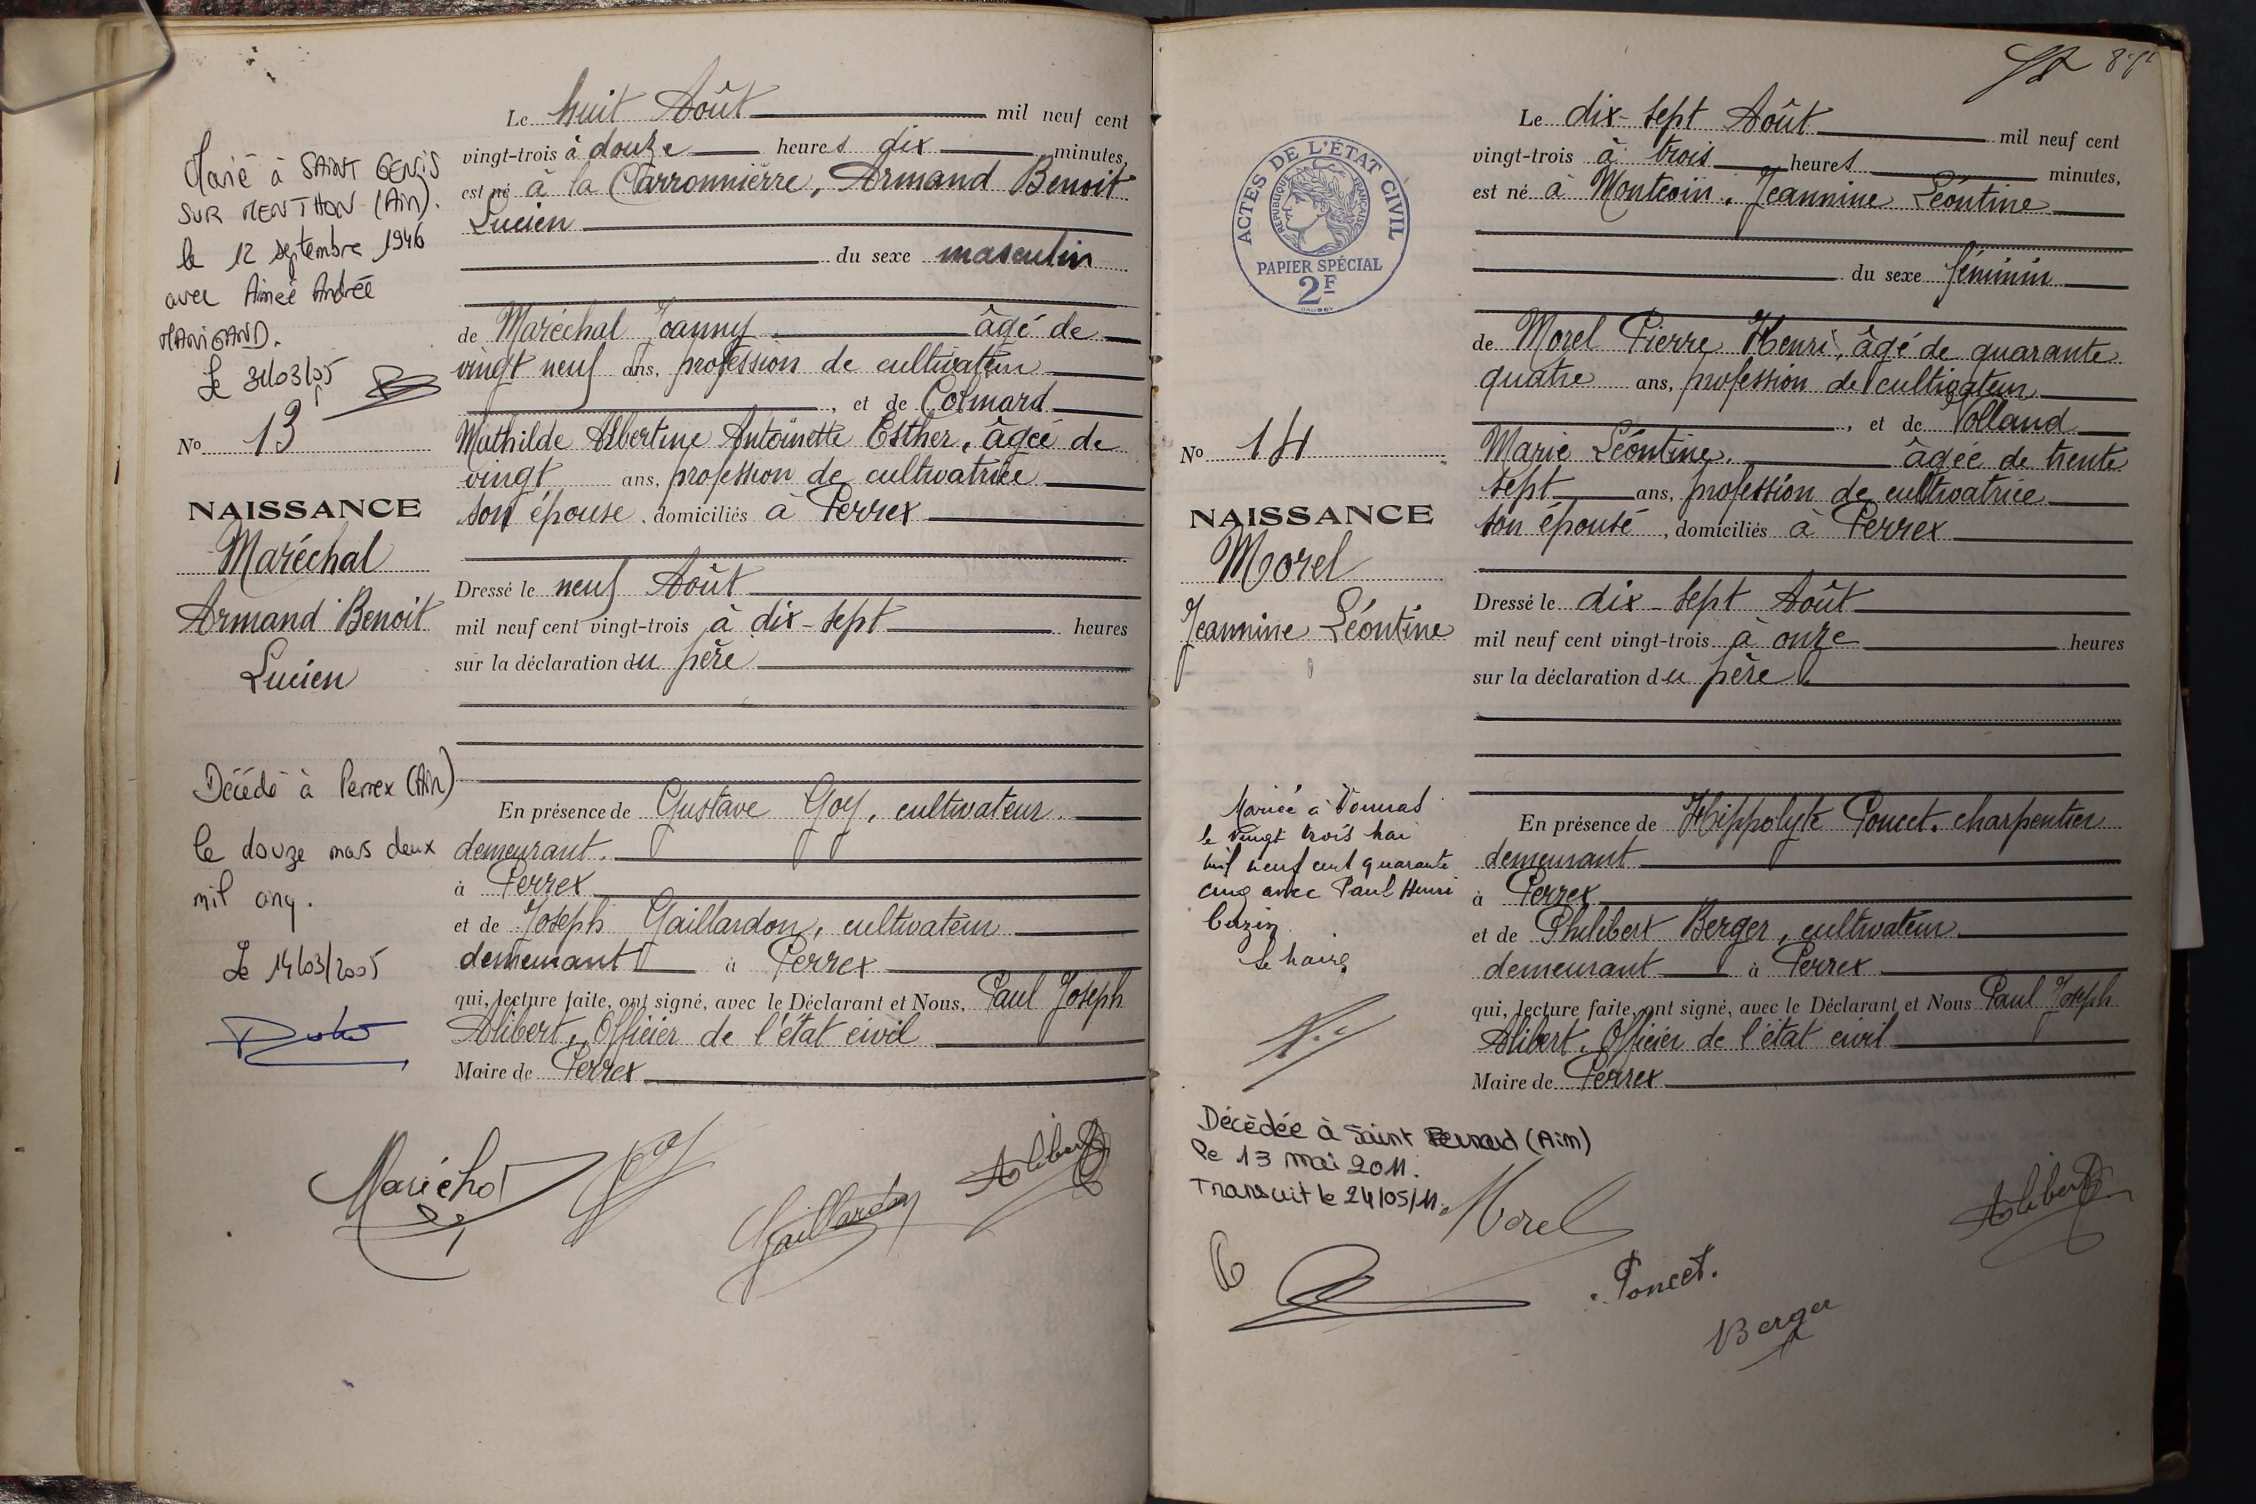 Marié à SAINT GENIS
SUR MENTHON (Ain).
le 12 septembre 1946
avec Aimée Andrée
MANIGAND.
Le 31/03/05
No 13
NAISSANCE
Maréchal
Armand Benoit
Lucien
Décédé à Perrex (Ain)
le douze mars deux
mil cinq.
Le 14/03/2005
Le huit Août mil neuf cent
vingt-trois à douze heures dix minutes,
est né à la Carronnièrre, Armand Benoit
Lucien
du sexe masculin
de Maréchal Joanny âgé de
vingt neuf ans, profession de cultivateur
, et de Colmard
Mathilde Albertine Antoinette Esther, âgée de
vingt ans, profession de cultivatrice
son épouse, domiciliés à Perrex
Dressé le neuf Août
mil neuf cent vingt-trois à dix-sept heures
sur la déclaration du père
En présence de Gustave Goy, cultivateur
demeurant
à Perrex
et de Joseph Gaillardon, cultivateur
demeurant à Perrex
qui, lecture faite, ont signé, avec le Déclarant et Nous, Paul Joseph
Alibert, Officier de l'état civil
Maire de Perrex
Maréchal Goy
Gaillardon Alibert
ACTES DE L'ÉTAT CIVIL
RÉPUBLIQUE FRANÇAISE
PAPIER SPÉCIAL
2F
No 14
NAISSANCE
Morel
Jeannine Léontine
Mariée à Vonnas
le vingt trois mai
mil neuf cent quarante
cinq avec Paul Henri
Cuzin
Le maire
Décédée à Saint (Ain)
le 13 mai 2011.
Transcrit le 24/05/11.
Le dix-sept Août mil neuf cent
vingt-trois à trois heures minutes,
est né à Montcoin, Jeannine Léontine
du sexe féminin
de Morel Pierre Henri, âgé de quarante
quatre ans, profession de cultivateur
, et de Volland
Marie Léontine, âgée de trente
sept ans, profession de cultivatrice
son épouse, domiciliés à Perrex
Dressé le dix-sept Août
mil neuf cent vingt-trois à onze heures
sur la déclaration du père
En présence de Hippolyte Poncet, charpentier
demeurant
à Perrex
et de Philibert Berger, cultivateur
demeurant à Perrex
qui, lecture faite, ont signé, avec le Déclarant et Nous Paul Joseph
Alibert, Officier de l'état civil
Maire de Perrex
Morel Alibert
Poncet.
Berger